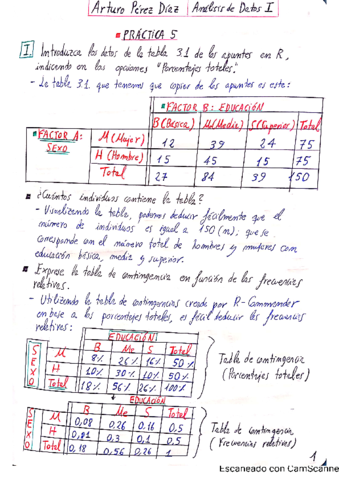 Arturo Pérez Díaz | Análisis de Datos I
PRÁCTICA 5
I. Introduzca los datos de la tabla 3.1 de los apuntes en R,
indicando en las opciones "Porcentajes totales."
- La tabla 3.1 que tenemos que copiar de los apuntes es esta:
FACTOR B: EDUCACIÓN
B (Básica) Me (Media) S (Superior) Total
FACTOR A: SEXO
M (Mujer) 12 39 24 75
H (Hombre) 15 45 15 75
Total 27 84 39 150
¿Cuántos individuos contiene la tabla?
- Visualizando la tabla, podemos deducir fácilmente que el
número de individuos es igual a 150 (n); que se
corresponde con el número total de hombres y mujeres con
educación básica, media y superior.
Exprese la tabla de contingencia en función de las frecuencias
relativas.
- Utilizando la tabla de contingencias creada por R-Commander
en base a los porcentajes totales, es fácil deducir las frecuencias
relativas:
EDUCACIÓN
SEXO B Me S Total
M 8% 26% 16% 50%
H 10% 30% 10% 50%
Total 18% 56% 26% 100%
Tabla de contingencia
(Porcentajes totales)
EDUCACIÓN
SEXO B Me S Total
M 0,08 0,26 0,16 0,5
H 0,01 0,3 0,1 0,5
Total 0,18 0,56 0,26 1
Tabla de contingencia
(Frecuencias relativas)
1
Escaneado con CamScanner